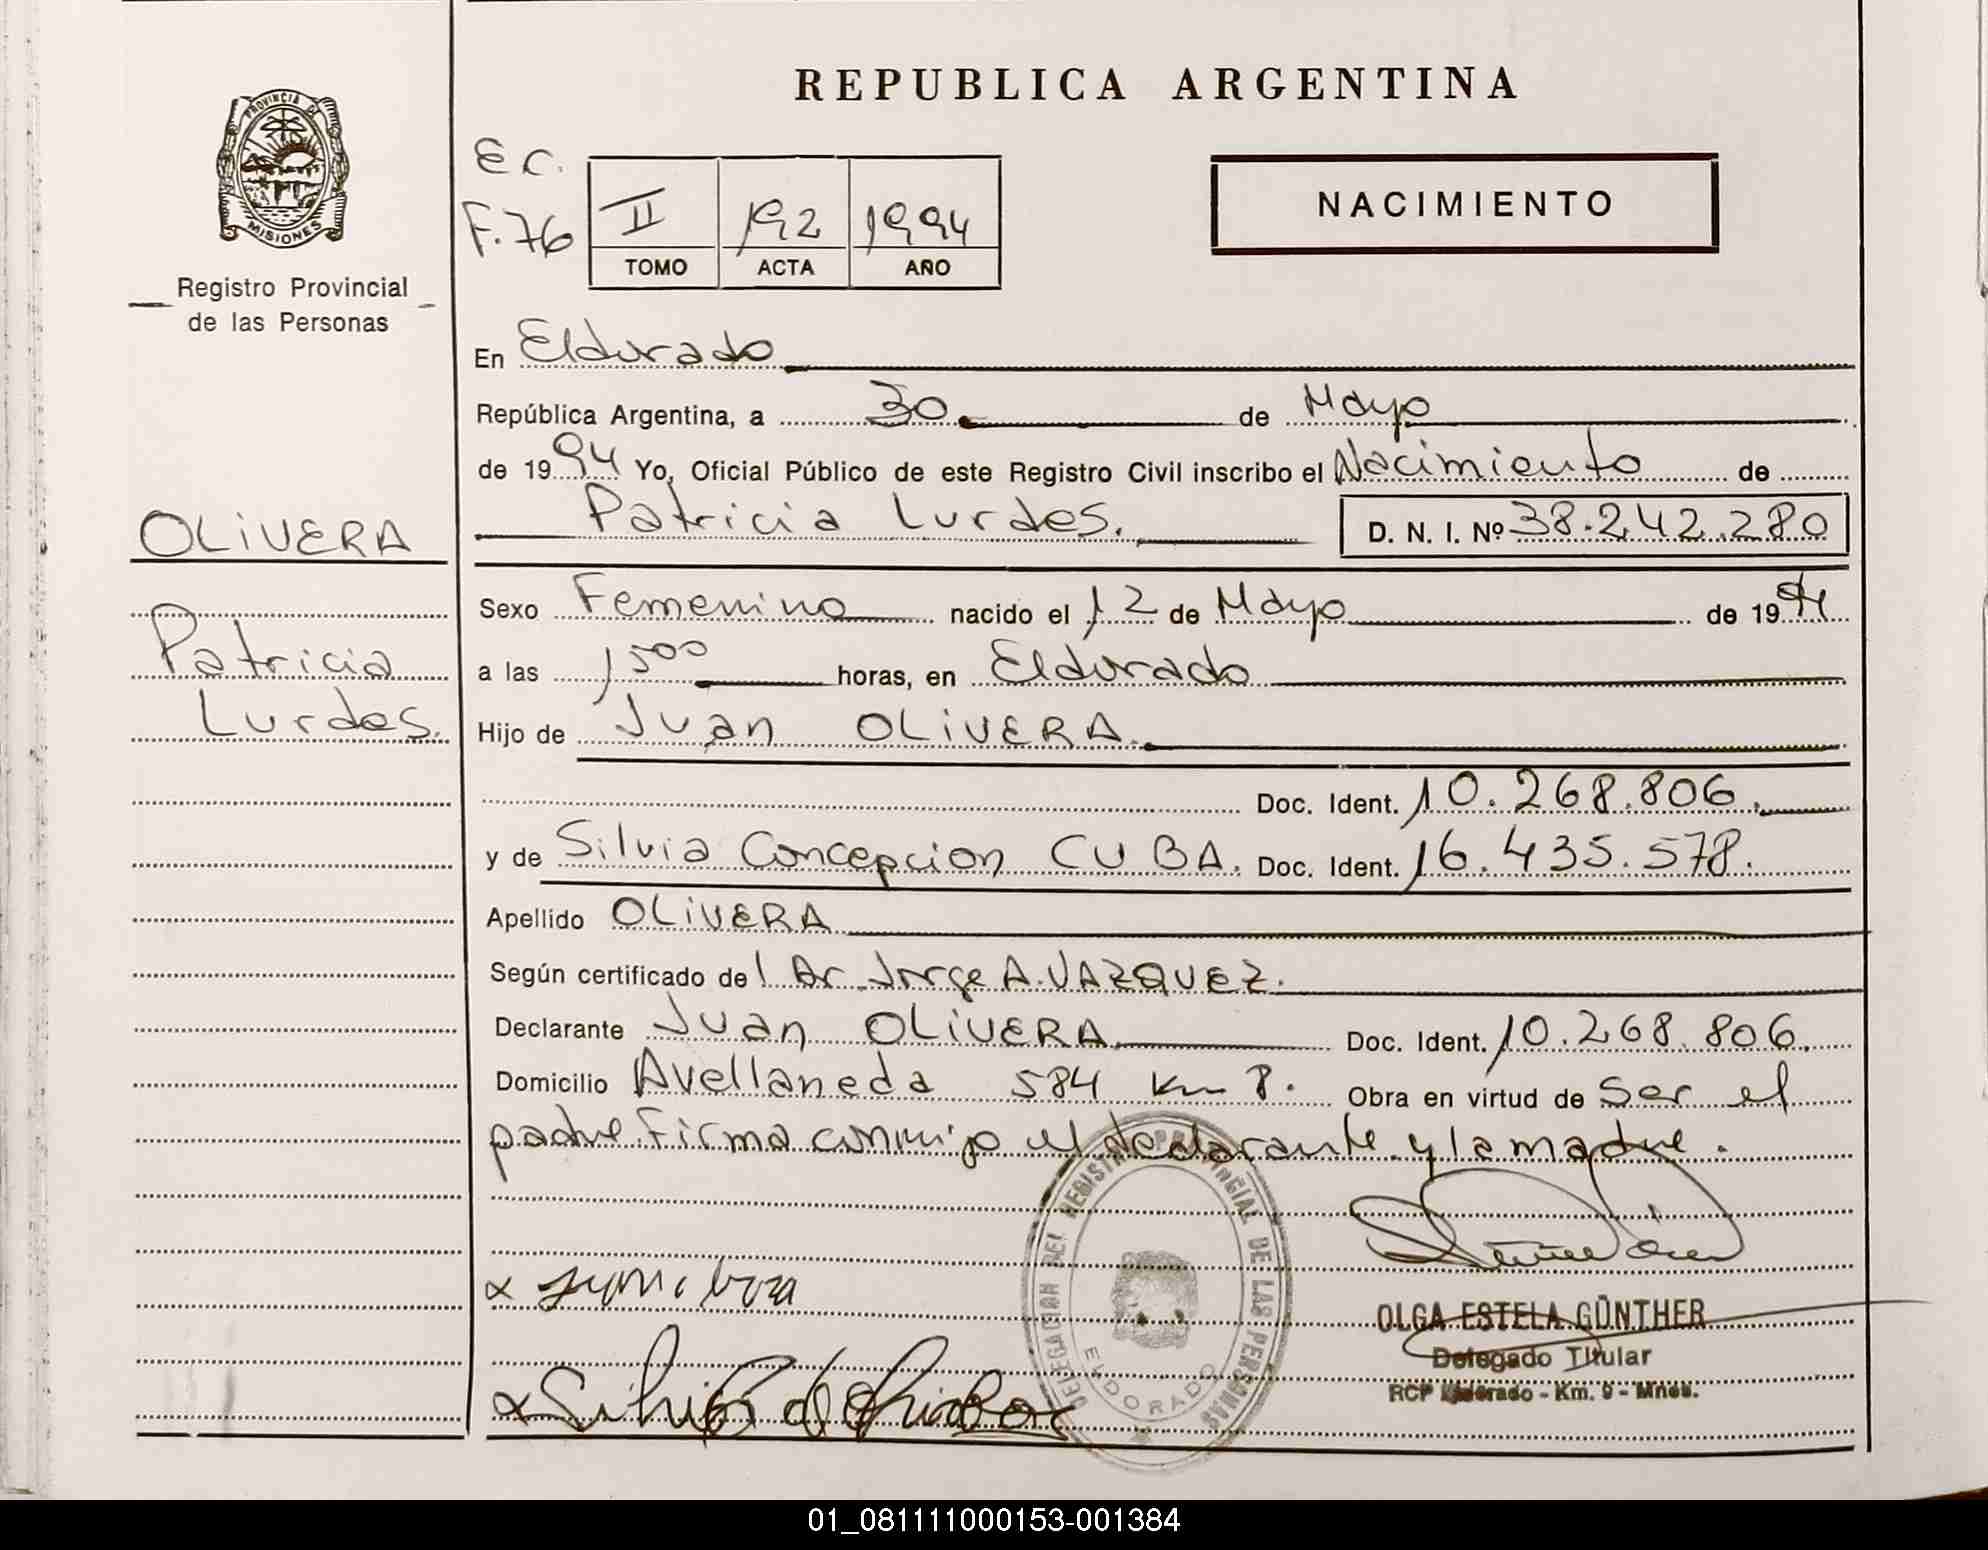 REPUBLICA ARGENTINA
PROVINCIA DE
MISIONES
Registro Provincial
de las Personas
E C.
F. 76
II 192 1994
TOMO ACTA AÑO
NACIMIENTO
OLIVERA
Patricia
Lurdes.
En Eldorado
República Argentina, a 30 de Mayo
de 1994 Yo, Oficial Público de este Registro Civil inscribo el Nacimiento de
Patricia Lurdes. D. N. I. Nº 38.242.280
Sexo Femenino nacido el 12 de Mayo de 1994
a las 1500 horas, en Eldorado
Hijo de Juan OLIVERA.
Doc. Ident. 10.268.806.
y de Silvia Concepcion CUBA. Doc. Ident. 16.435.578.
Apellido OLIVERA
Según certificado del Dr. Jorge A. VAZQUEZ.
Declarante Juan OLIVERA Doc. Ident. 10.268.806.
Domicilio Avellaneda 584 Km 8. Obra en virtud de ser el
padre. Firma conmigo el declarante y la madre.
DELEGACION DEL REGISTRO PROVINCIAL DE LAS PERSONAS
ELDORADO
OLGA ESTELA GÜNTHER
Delegado Titular
RCP Eldorado - Km. 9 - Mnes.
01_081111000153-001384